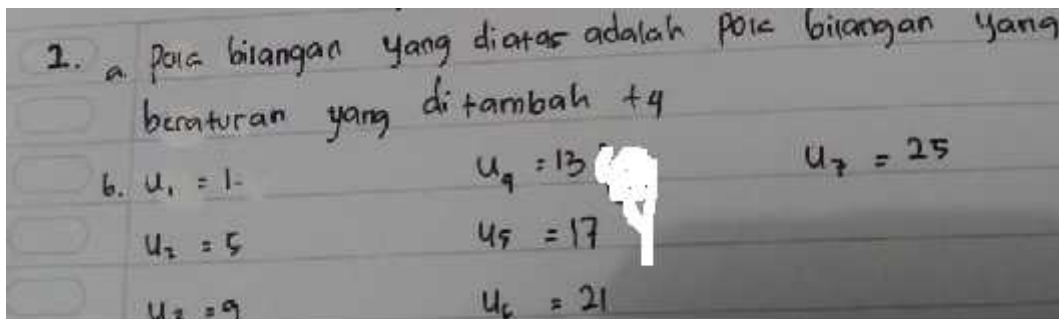 1. a. Pola bilangan yang diatas adalah pola bilangan yang
beraturan yang di tambah +4
b. U₁ = 1 U₄ = 13 U₇ = 25
U₂ = 5 U₅ = 17
U₃ = 9 U₆ = 21